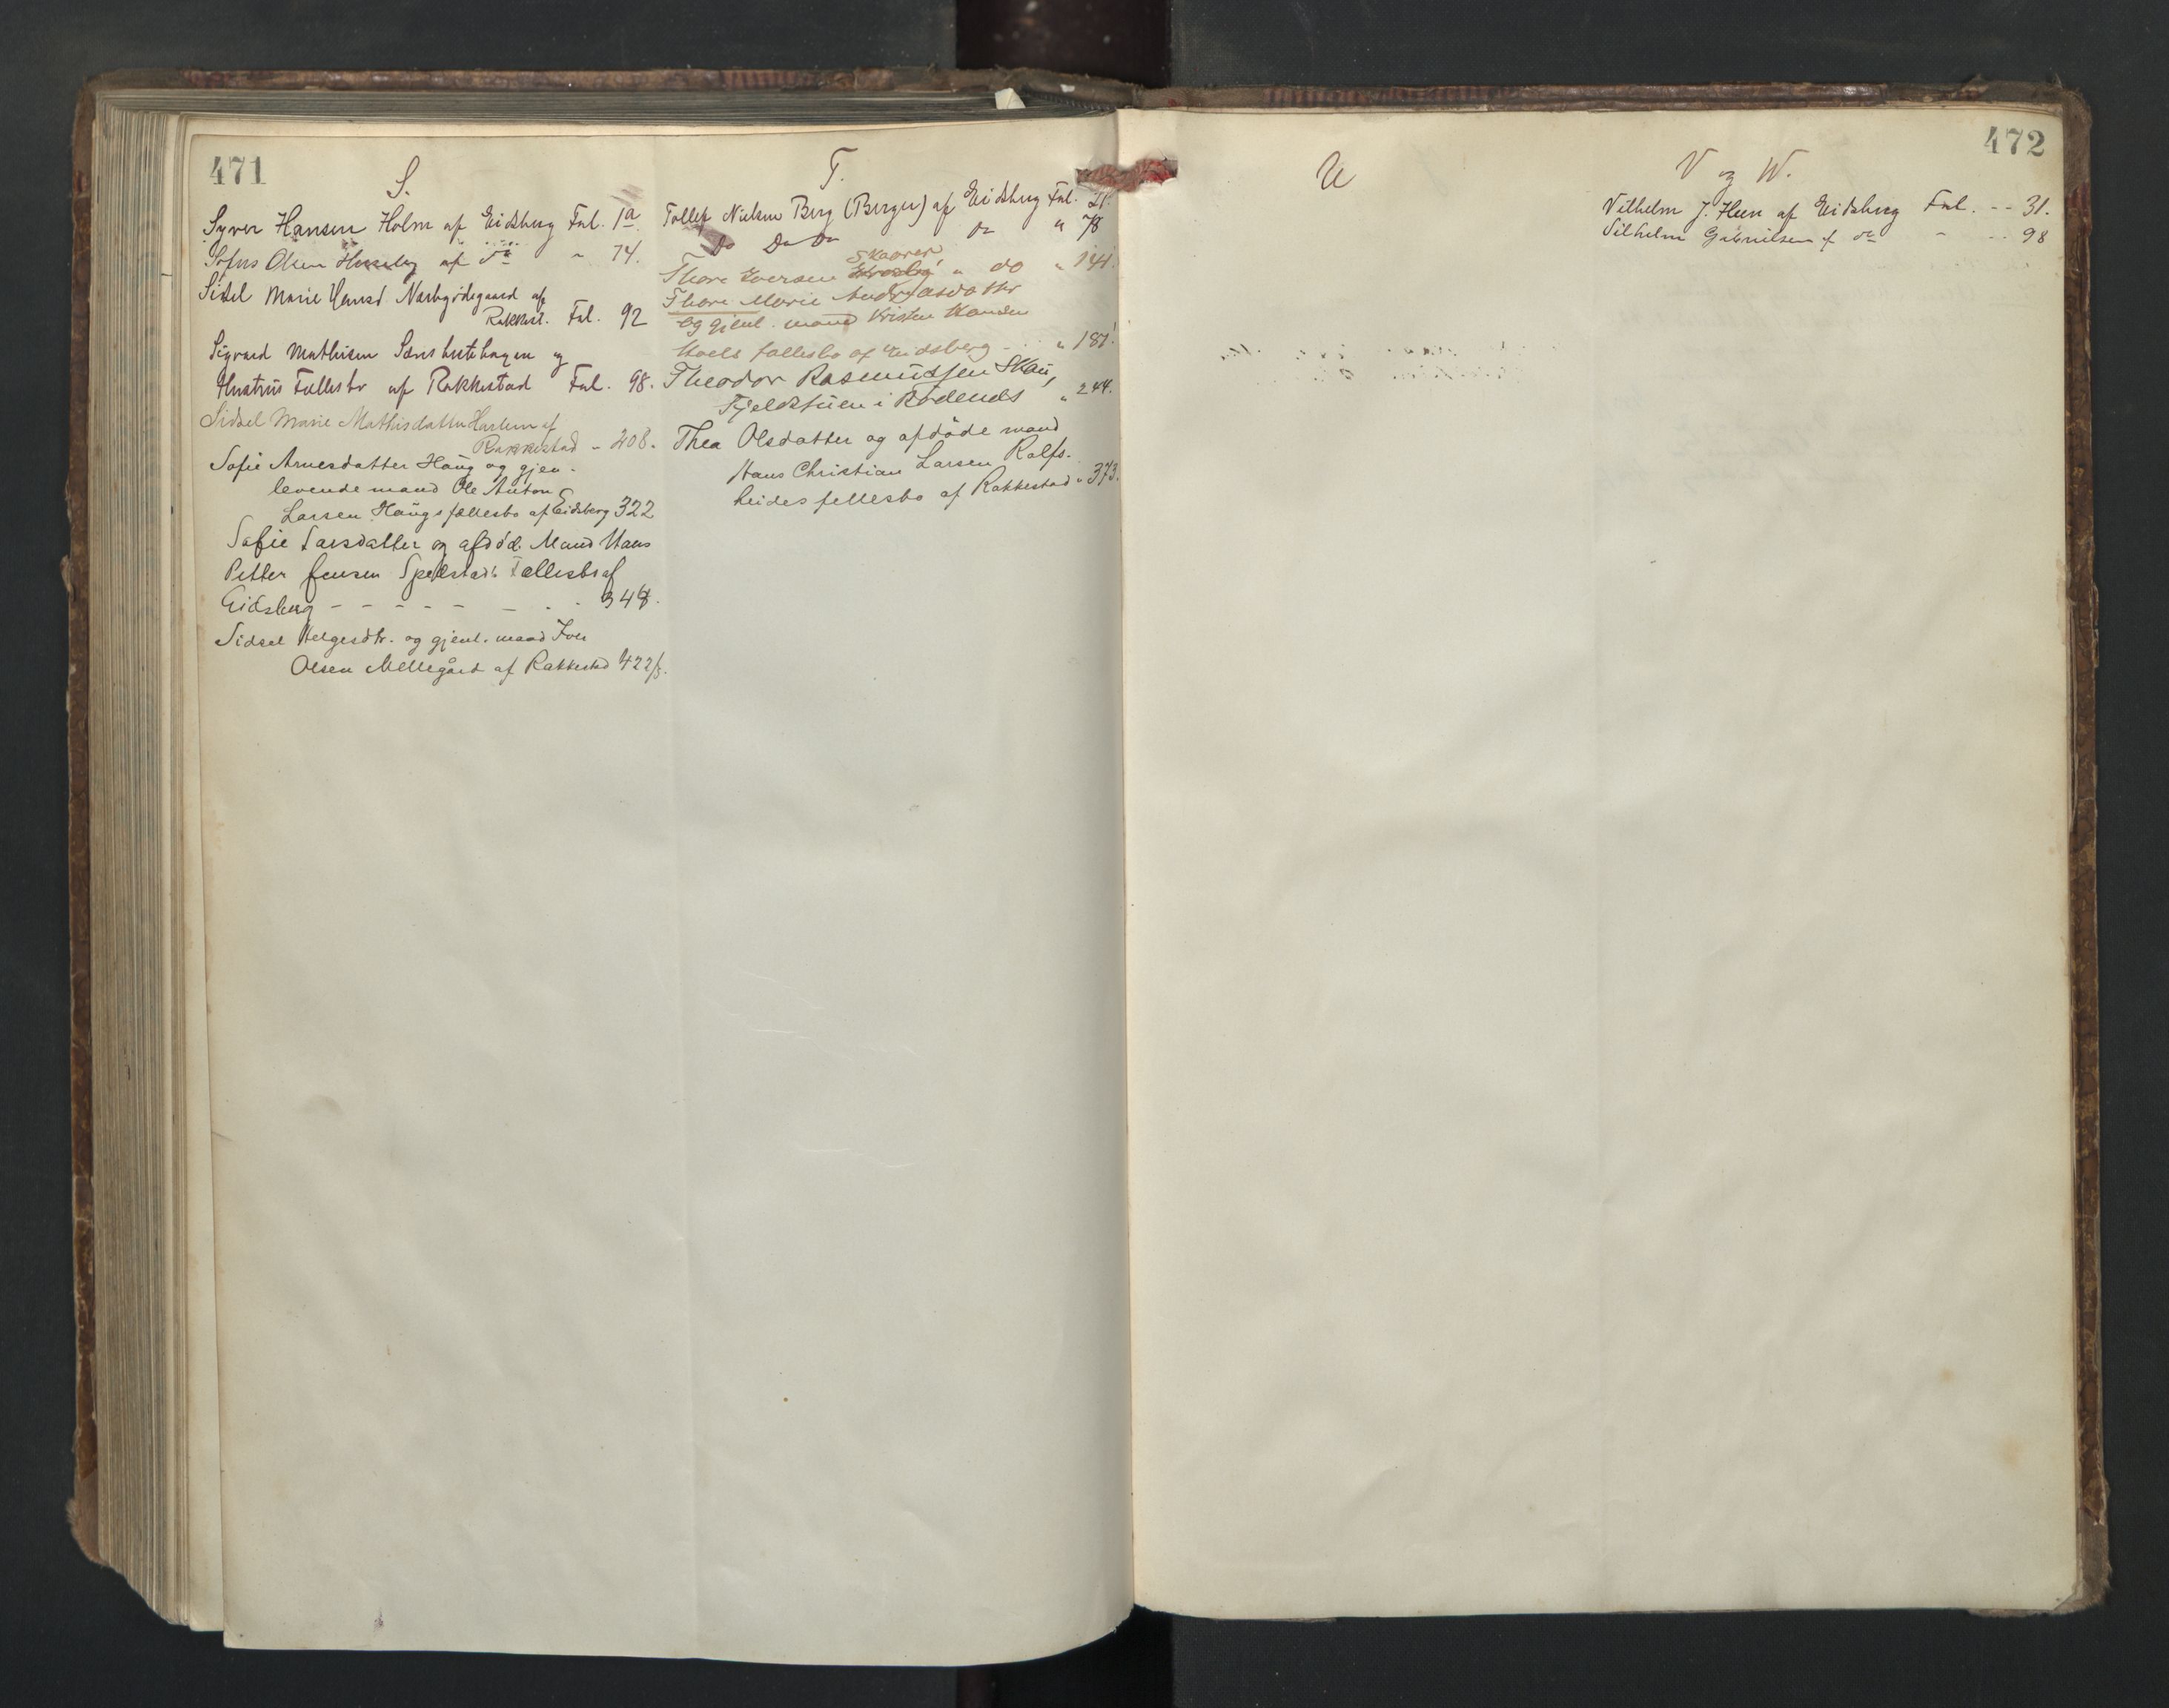 471
S.
Syver Hansen Holm af Eidsberg Fol. 1a
Sofus Olsen Huseby af do " 74.
Sidsel Marie Hansd. Narbygödegaard af
Rakkest. Fol. 92
Sigvard Mathisen og
Hustrus Fællesbo af Rakkestad Fol. 98.
Sidsel Marie Mathisdatter Harlem af
Rakkestad - 208.
Sofie Arnesdatter Haug og gjen-
levende mand Ole Anton
Larsen Haugs fællesbo af Eidsberg 322
Sofie Larsdatter og afdöde Mand Hans
Petter Jensen Spelstads Fællesbo af
Eidsberg - - - - - - - - 348.
Sidsel Helgesdtr. og gjenl. mand Iver
Olsen Mellegård af Rakkestad 422/3.
T.
Tollef Nielsen Berg (Berger) af Eidsberg Fol. 21.
Do Do Do do " 78
Skaarer,
Thore Iversen " do " 141.
Thore Marie Andreasdatter
og gjenl. mand Kristen
fallesbo af Eidsberg - - " 181.
Theodor Rasmussen Skau,
Fjeldstuen i Rödenes " 244.
Thea Olsdatter og afdöde mand
Hans Christian Larsen Ralfs-
heides fellesbo af Rakkestad " 373.
U
472
V og W.
Vilhelm J. Heen af Eidsberg Fol. -- 31.
Vilhelm Gabrielsen af do - -- 98